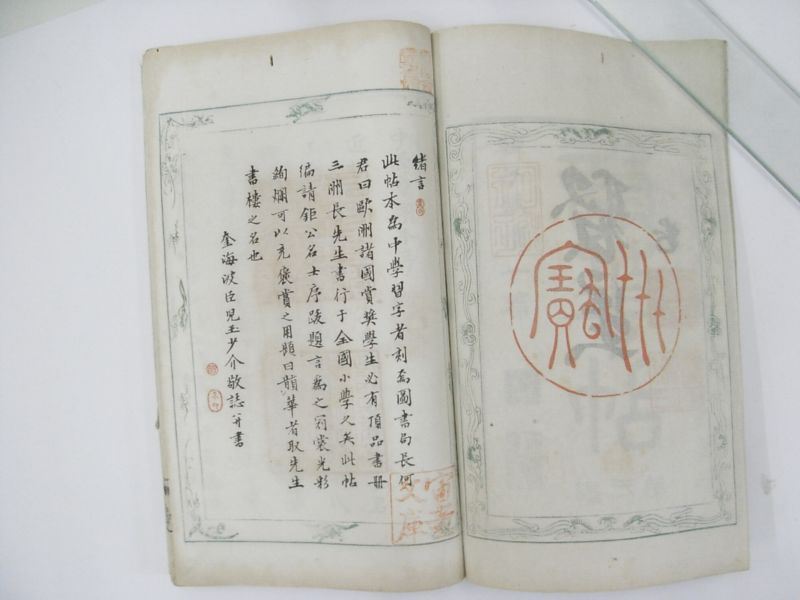 緒言
此帖本為中學習字者刻為圖書局長何
君曰歐洲諸國賞奬學生必有頂品書冊
三洲長先生書行于全國小學久矣此帖
編請鉅公名士序跋題言為之冠裳光彩
絢爛可以充褒賞之用題曰韻華者取先生
書樓之名也
奎海波臣児玉少介敬誌并書